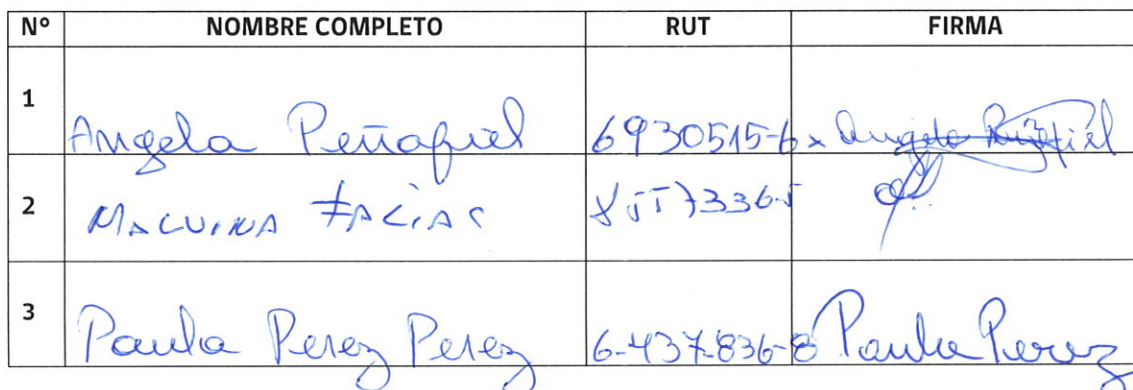 N° NOMBRE COMPLETO RUT FIRMA
1 Angela Peñafiel 6930515-6 x Angela Peñafiel
2 MALVINA 
3 Paula Perez Perez 6-437.836-8 Paula Perez